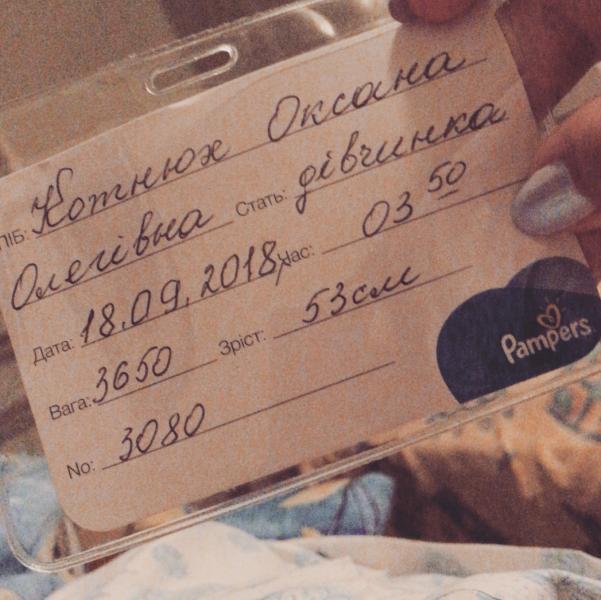 ПІБ: Котнюх Оксана
Олегівна Стать: дівчинка
Дата: 18.09.2018р Час: 03 50
Вага: 3650 Зріст: 53см
No: 3080
Pampers